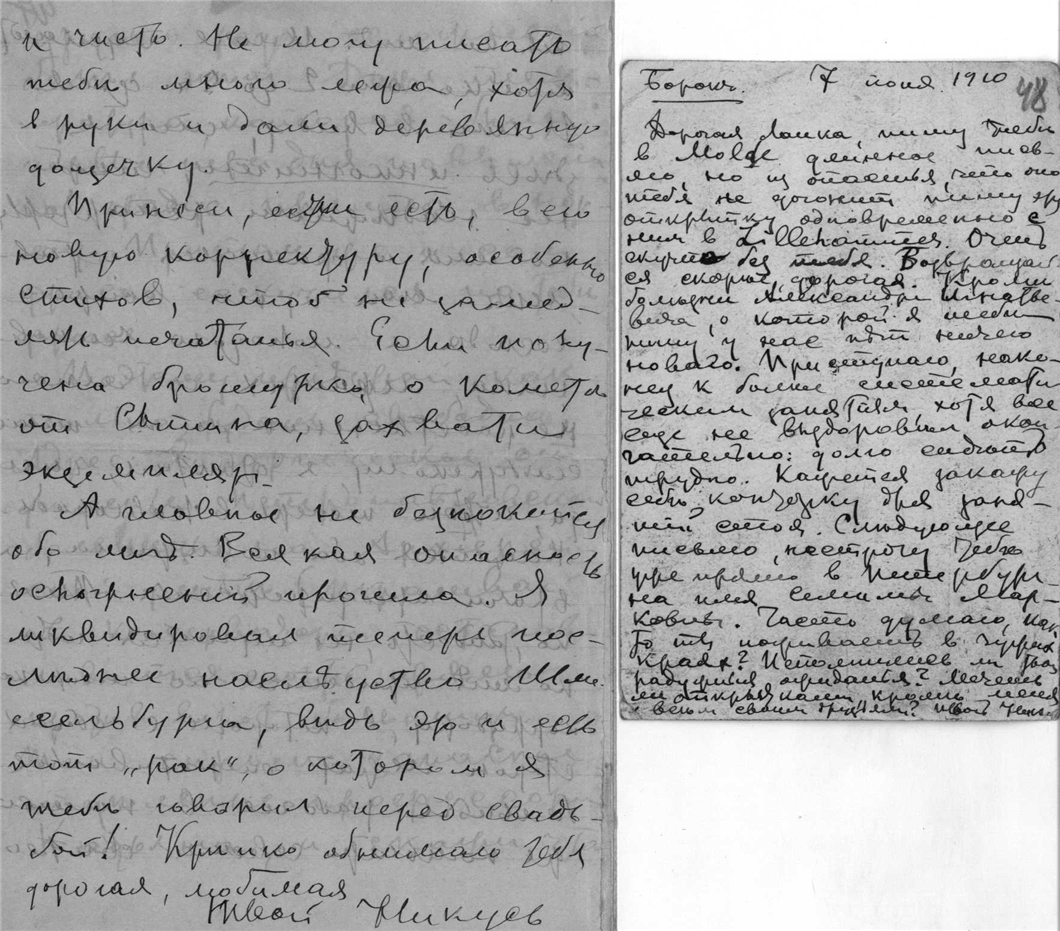 и чисто. Не могу писать
тебѣ много лежа, хотя
в руки и дали деревянную
дощечку.
Принеси, если есть, всю
новую корректуру, особенно
стихов, чтоб не замед-
лять печатанья. Если полу-
чена брошюрка о кометѣ
от Сытина, захвати
экземпляр.
А главное не безпокойся
обо мнѣ. Всякая опасность
осложнений прошла. Я
ликвидировал теперь пос-
лѣднее наслѣдство Шлис-
сельбурга, вѣдь это и есть
тот „рак“, о котором я
тебѣ говорил перед свадь-
бой! Крѣпко обнимаю тебя
дорогая, любимая
Твой
Борокъ. 7 июня. 1910
48
Дорогая пишу тебѣ
в Molde длинное пись-
мо, но из опасенья, что оно
тебя не догонит пишу эту
открытку одновременно с
ним в Lillehammer. Очень
скучно без тебя. Возвращай-
ся скорѣе, дорогая. Кромѣ
болѣзни Александры Игнатье-
, о которой я тебѣ
пишу у нас нѣт ничего
новаго. Приступаю, нако-
нец к болѣе системати-
ческим занятіям, хотя все
еще не выздоровѣл окон-
чательно: долго сидѣть
трудно. Кажется закажу
себѣ конторку для заня-
тій стоя. Слѣдующее
письмо, настрочу тебѣ
уже прямо в Петербург
на имя Мар-
ковны. Часто думаю, как
то ты поживаешь в чужих
краях? Исполнились ли твои
радужныя ожиданья?
ли открытками кромѣ меня
и всѣм своим друзьям? Твой